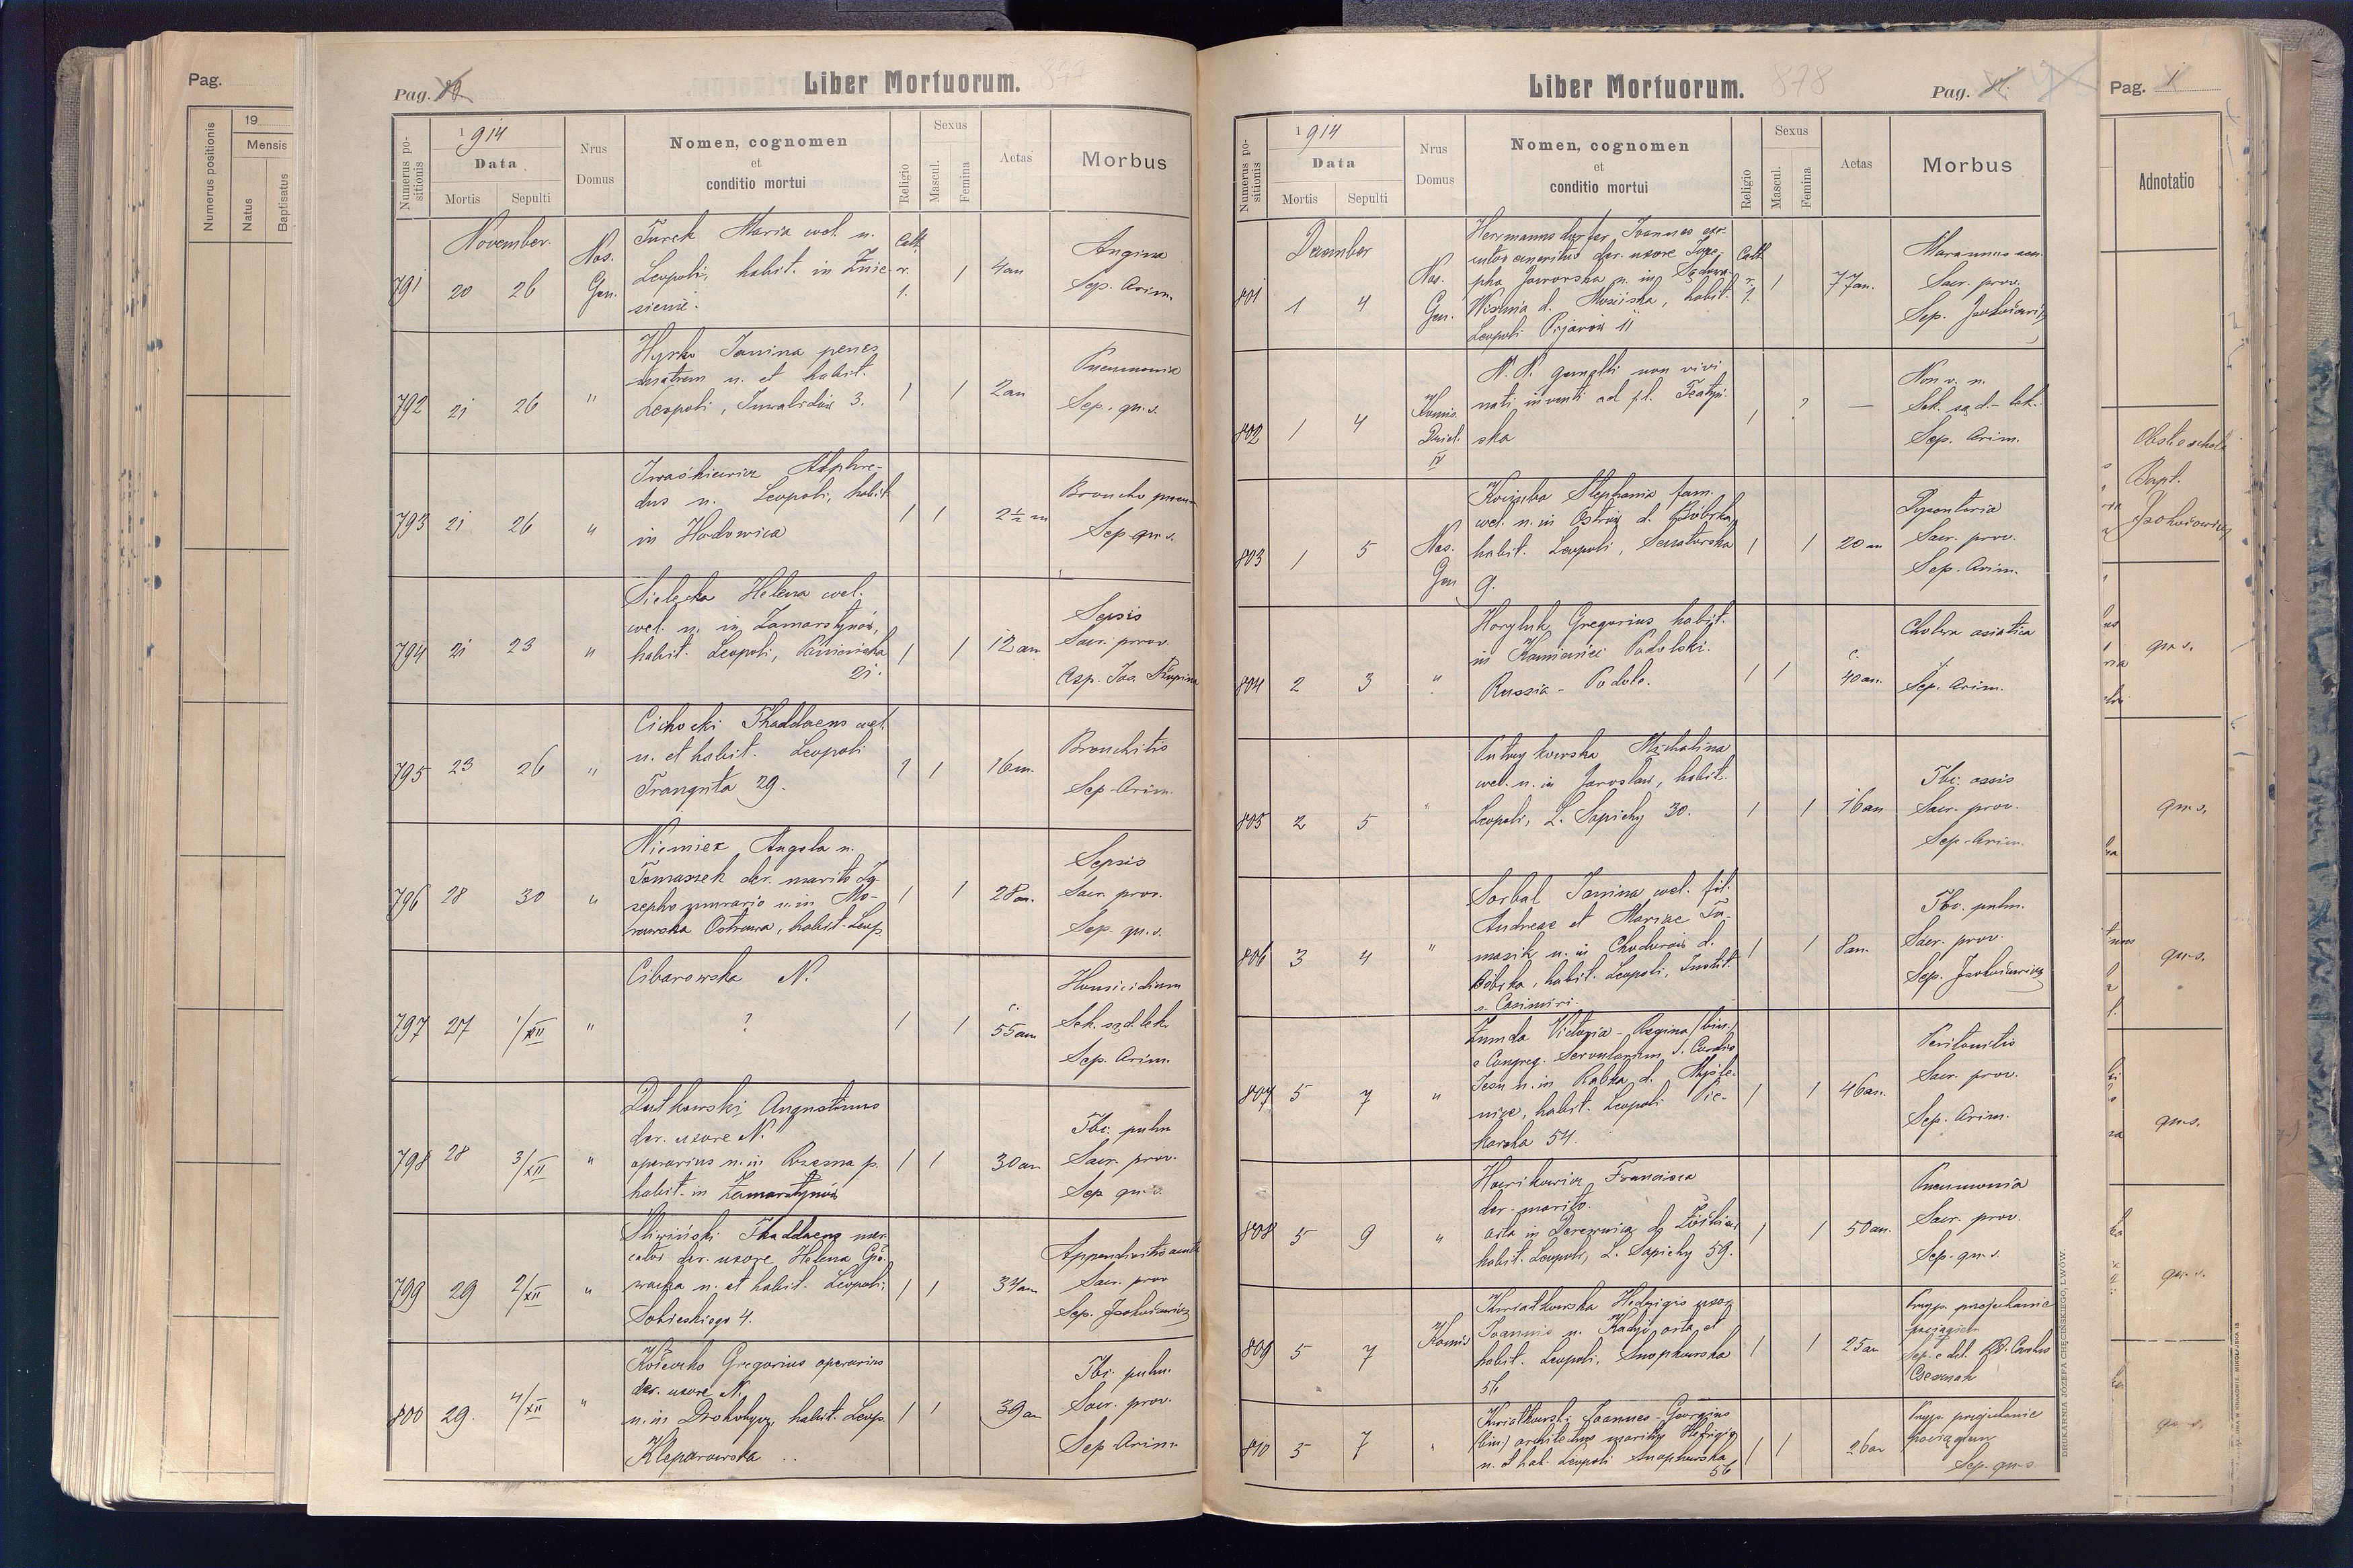 Pag.
19
Mensis
Numerus positionis
Natus
Baptisatus
Pag. 10.
Liber Mortuorum.
877
Numerus positionis
1914
Data
Mortis
Sepulti
Nrus Domus
Nomen, cognomen
et
conditio mortui
Religio
Sexus
Mascul.
Femina
Aetas
Morbus
November
791 20 26 Nos. Gen.
Turek Maria coel. n.
Leopoli, habit. in Znie-
sienie.
Cath. r. 1. 1 4 an
Angina
Sep. Arim.
792 21 26 "
Hyrko Janina penes
matrem n. et habit.
Leopoli, Inwalidów 3.
1 1 2 an
Pneumonia
Sep. qu. s.
793 21 26 "
Iwaśkiewicz Alphre-
dus n. Leopoli, habit.
in Hodowica
1 1 2½ m
Broncho pneum
Sep. qu. s.
794 21 23 "
Sielecka Helena coel.
coel. n. in Zamarstynów,
habit. Leopoli,
21.
1 1 12 an
Sepsis
Sacr. prov.
795 23 26 "
Cichocki Thaddaeus coel.
n. et habit. Leopoli
Traugutta 29.
1 1 16 m.
Bronchitis
Sep. Arim.
796 28 30 "
Niemiec Angela n.
Tomaszek der. marito Jo-
sepho murario n. in Mo-
rawska Ostrawa, habit. Leop.
1 1 28 an.
Sepsis
Sacr. prov.
Sep. qu. s.
797 27 1/XII "
Cibarowska N.
?
1 1 c. 55 an
Homicidium
Sek. sąd. lek.
Sep. Arim.
798 28 3/XII "
Dutkowski Augustinus
der. uxore N.
operarius n. in Rzesna p.
habit. in Zamarstynów
1 1 30 an
Tbc. pulm
Sacr. prov.
Sep. qu. s.
799 29 2/XII "
Śliwiński Thaddaeus mer-
cator der. uxore Helena Gło-
wacka n. et habit. Leopoli,
Sobieskiego 4.
1 1 34 an
Appendicitis acuta
Sacr. prov
800 29. 4/XII "
Gregorius operarius
der. uxore N.
n. in Drohobycz, habit. Leop.
Kleparowska
1 1 39 an
Tbc. pulm.
Sacr. prov.
Sep. Arim
Liber Mortuorum.
878
Pag. 11.
Numerus positionis
1914
Data
Mortis
Sepulti
Nrus Domus
Nomen, cognomen
et
conditio mortui
Religio
Sexus
Mascul.
Femina
Aetas
Morbus
December
801 1 4 Nos. Gen.
Herrmannsdorfer Joannes
emeritus der. uxore Jose-
pha Jaworska n. in Sądowa
Wisznia d. Mościska, habit.
Leopoli Pijarów 11
Cath. r. 1. 1 77 an.
Marasmus sen.
Sacr. prov.
802 1 4 Komis. Dziel. IV
N. N. gemelli non vivi
nati inventi ad pl. Teatyń-
ska
1 ? —
Non v. n.
Sek. sąd.-lek.
Sep. Arim.
803 1 5 Nos. Gen
Stephania fam.
coel. n. in Ostrów d. Bóbrka,
habit. Leopoli, Senatorska
9.
1 1 20 an
Dysenteria
Sacr. prov.
Sep. Arim.
804 2 3 "
Horyluk Gregorius habit.
in Kamieniec Podolski.
Russia - Podole.
1 1 c. 40 an.
Cholera asiatica
Sep. Arim.
805 2 5 "
Michalina
coel. n. in Jarosław, habit.
Leopoli, L. Sapiehy 30.
1 1 16 an
Tbc. ossis
Sacr. prov.
Sep. Arim.
806 3 4 "
Sorbal Janina coel. fil.
Andreae et Mariae To-
masik n. in Chodorów d.
Bóbrka, habit. Leopoli, Instit.
s. Casimiri.
1 1 8 an.
Tbc. pulm.
Sacr. prov.
807 5 7 "
Żumda Victoria - Regina (bin.)
e Congreg. Servularum S. Cordis
Jesu n. in Rabka d. Myśle-
nice, habit. Leopoli Pie-
karska 54.
1 1 46 an.
Peritonitis
Sacr. prov.
Sep. Arim.
808 5 9 "
Hawrikowicz Francisca
der. marito
orta in Derewnia d. Żółkiew
habit. Leopoli, L. Sapiehy 59.
1 1 50 an.
Pneumonia
Sacr. prov.
Sep. qu. s.
809 5 7 Komis
Kwiatkowska Hedvigis uxor
Joannis n. Kadyi, orta et
habit. Leopoli, Snopkowska
56
1 1 25 an
Przyp. przejechanie
pociągiem
810 5 7 "
Kwiatkowski Joannes-Georgius
(bin) architectus maritus Hedvigis
n. et hab. Leopoli Snopkowska
56
1 1 26 an
Przyp. przejechanie
pociągiem
Sep. qu. s
DRUKARNIA JÓZEFA CHĘCIŃSKIEGO, LWÓW.
Pag. 1
Adnotatio
Bapt.
qu. s.
qu. s.
qu. s.
qu. s.
qu. s.
qu. s.